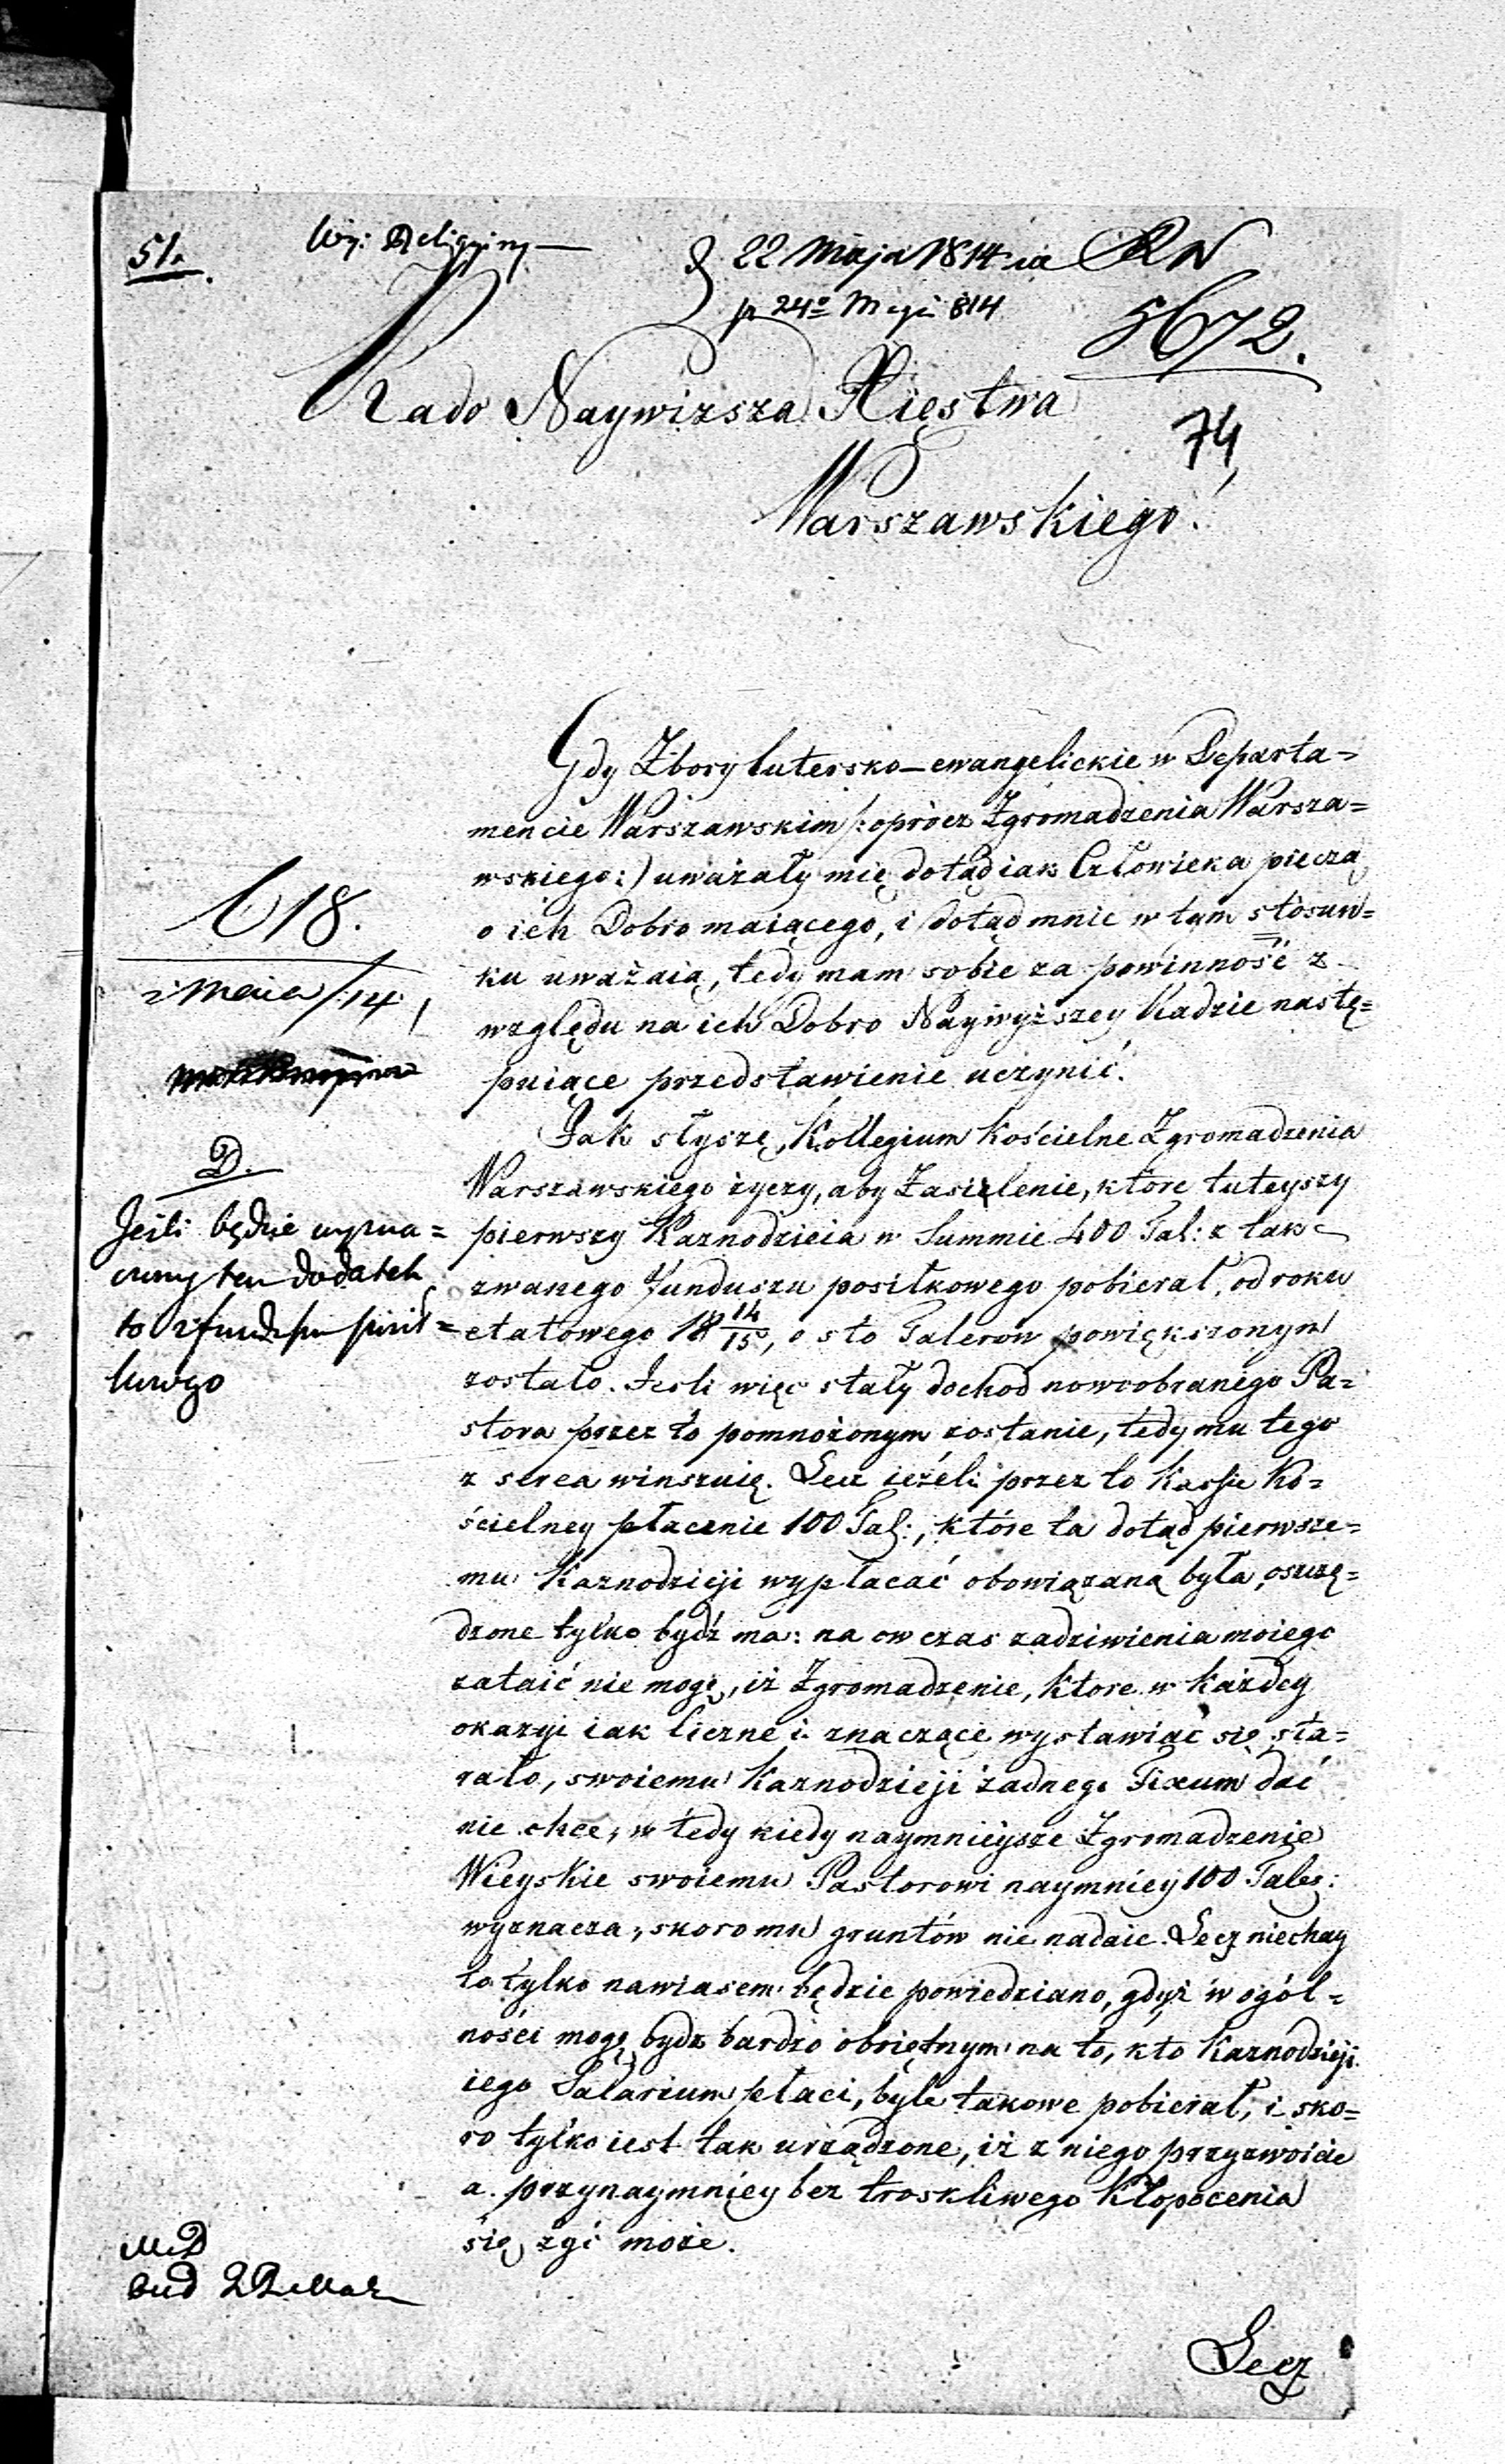 51.
Wy: Religyiny
d 22 Maja 1814 RN
p 24º Maja 814
5672.
Rado Naywizsza Xięstwa
74
Warszawskiego!
Gdy Zbory lutersko-ewangelickie w Departa=
mencie Warszawskim /: oprócz Zgromadzenia Warsza=
wskiego:) uważały mię dotąd iak Człowieka pieczą
o ich Dobro maiącego, i dotąd mnie w tym stosun=
ku uważaią, tedy mam sobie za powinność z
względu na ich Dobro Naywyższey Radzie nastę=
puiące przedstawienie uczynić.
Jak słyszę, Kollegium Kościelne Zgromadzenia
Warszawskiego życzy, aby Zasielenie, które tuteyszy
pierwszy Kaznodzieia w Summie 400 Tal: z tak
zwanego funduszu posiłkowego pobierał, od roku
etatowego 18 14/15, o sto Talerow powiększonym
zostało. Jesli więc stały dochod nowoobranego Pa=
stora przez to pomnożonym zostanie, tedy mu tego
z serca winszuię. Lecz ieżeli przez to Kassie Ko=
ścielney płacenie 100 Tal:, które ta dotąd pierwsze=
mu Kaznodzieji wypłacać obowiązaną była, oszczę=
dzone tylko bydź ma: na ow czas zadziwienia moiego
zataić nie mogę, iż Zgromadzenie, ktore w każdey
okazyi iak liczne i znaczące wystawiać się sta=
rało, swoiemu Kaznodzieji żadnego Fixum dać
nie chce, w tedy kiedy naymnieysze Zgromadzenie
Wieyskie swoiemu Pastorowi naymniey 100 Taler:
wyznacza, skoro mu gruntów nie nadaie. Lecz niechay
to tylko nawiasem będzie powiedziano, gdyż w ogól=
ności mogę bydz bardzo obojętnym na to, kto Kaznodzieji
iego Salarium płaci, byle takowe pobierał, i sko=
ro tylko iest tak urządzone, iż z niego przyzwoicie
a przynaymniey bez troskliwego Kłopocenia
się żyć może.
Lecz
618.
Maia /:14
D.
Jeśli będzie wyzna=
czony ten dodatek
to z funduszu posił=
kowego
MD
bud 22